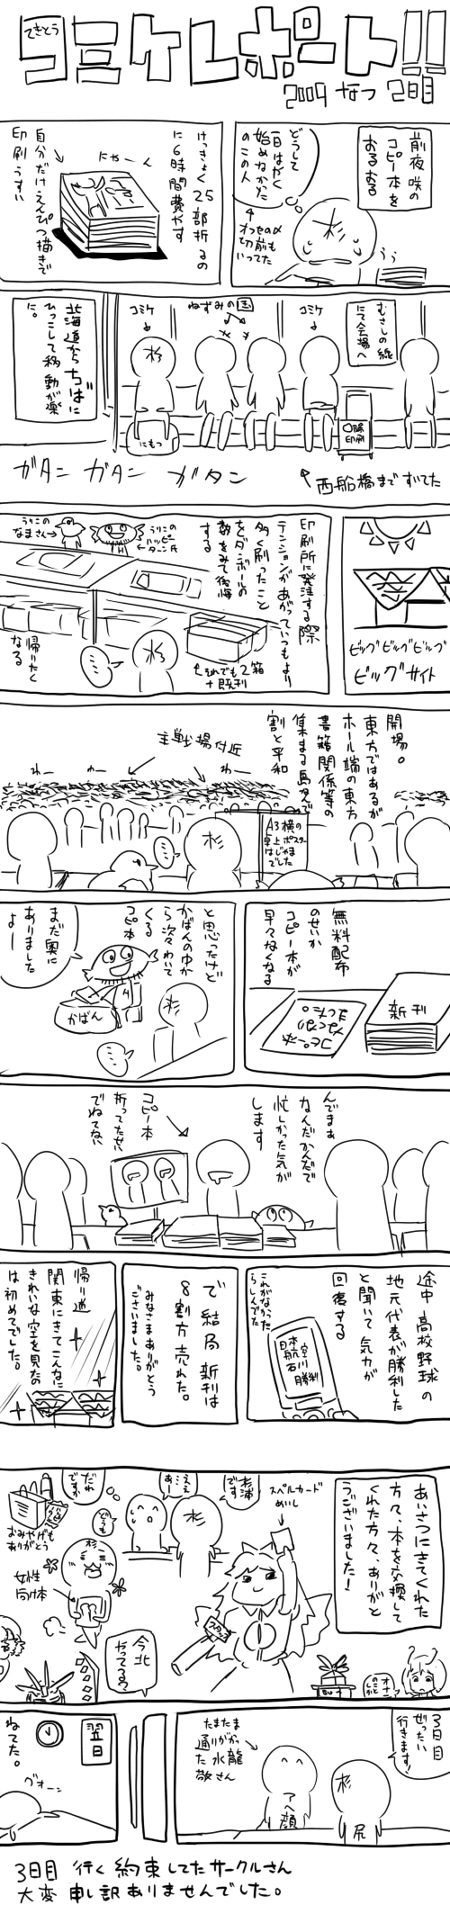 てきとう
コミケレポート!!
2009 なつ 2日目
前夜 咲の
コピー本を
おるおる
どうして
一日はやく
始めなかった
のこの人
けっきょく25
部折るの
に6時間費やす
にゃーん
自分だけえんぴつ描きで
印刷うすい
むさしの線
にて会場へ
コミケ
ねずみの国
コミケ
杉
にもつ
印刷
北海道からちばに
ひっこして移動が楽
だ。
ガタン ガタン ガタン
西船橋まですいてた
ビッグビッグビッグ
ビッグサイト
印刷所に発注する際
テンションがあがっていつもより
多く刷ったこと
をダンボールの
数をみて後悔
する
うりこの
なまさん
うりこの
ハッピー
ターン氏
それでも2箱
+既刊
杉
帰りたく
なる
開場。
東方ではあるが
ホール端の東方
書籍関係等の
集まる島なんで
割と平和
主戦場付近
わー
わー
わー
A3横の
卓上ポスター
はじゃま
でした
杉
無料配布
のせいか
コピー本が
早々なくなる
新刊
コピー本
なくなり
ました
と思ったけど
かばんの中か
ら次々わいて
くる
コピ本
まだ奥に
ありました
よー
かばん
杉
んでまぁ
なんだかんだで
忙しかった気が
します
コピー本
折ってたせい
でねてない
途中 高校野球の
地元代表が勝利した
と聞いて気力が
回復する
これがなかった
らしんでた
日本
航空
石川
勝利
で 結局 新刊は
8割方売れた。
みなさまありがとう
ございました。
帰り道
関東にきてこんなに
きれいな空を見たの
は初めてでした。
あいさつにきてくれた
方々、本を交換して
くれた方々、ありがと
うございました!
スペルカード
めいし
杉浦
です
ええ
あー
だれ
ですか
どうも
おみやげも
ありがとう
女性
向け本
スタッフ
今北
やってる?
3日目
ぜったい
行きます!
たまたま
通りがかっ
た水龍
敬さん
アヘ顔
杉
尻
翌日
グォーン
ねてた。
3日目 行く約束してたサークルさん
大変 申し訳ありませんでした。